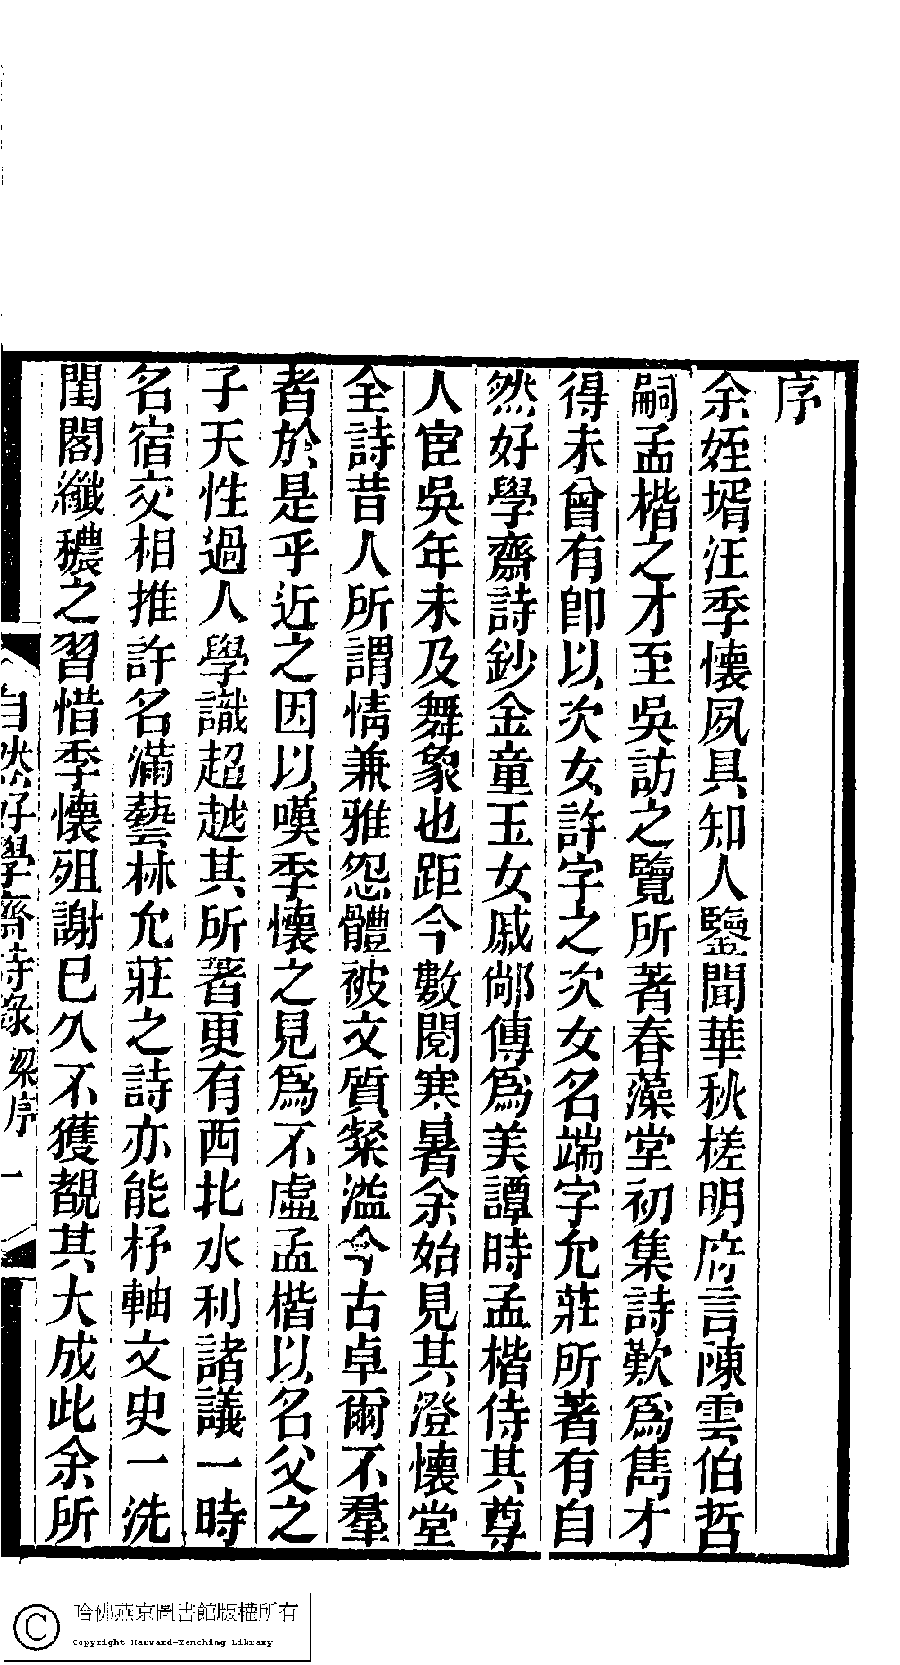 序
余姪壻汪季懷夙具知人鑒聞華秋槎明府言陳雲伯哲
嗣孟楷之才至吳訪之覽所著春藻堂初集詩歎爲雋才
得未曾有卽以次女許字之次女名端字允莊所著有自
然好學齋詩鈔金童玉女戚鄰傳爲美譚時孟楷侍其尊
人宦吳年未及舞象也距今數閱寒暑余始見其澄懷堂
全詩昔人所謂情兼雅怨體被文質粲溢今古卓爾不羣
者於是乎近之因以嘆季懷之見爲不虛孟楷以名父之
子天性過人學識超越其所著更有西北水利諸議一時
名宿交相推許名滿藝林允莊之詩亦能杼軸文史一洗
閨閣纖穠之習惜季懷殂謝已久不獲覩其大成此余所
自然好學齋詩錄 梁序 一
哈佛燕京圖書館版權所有
Copyright Harvard-Yenching Library